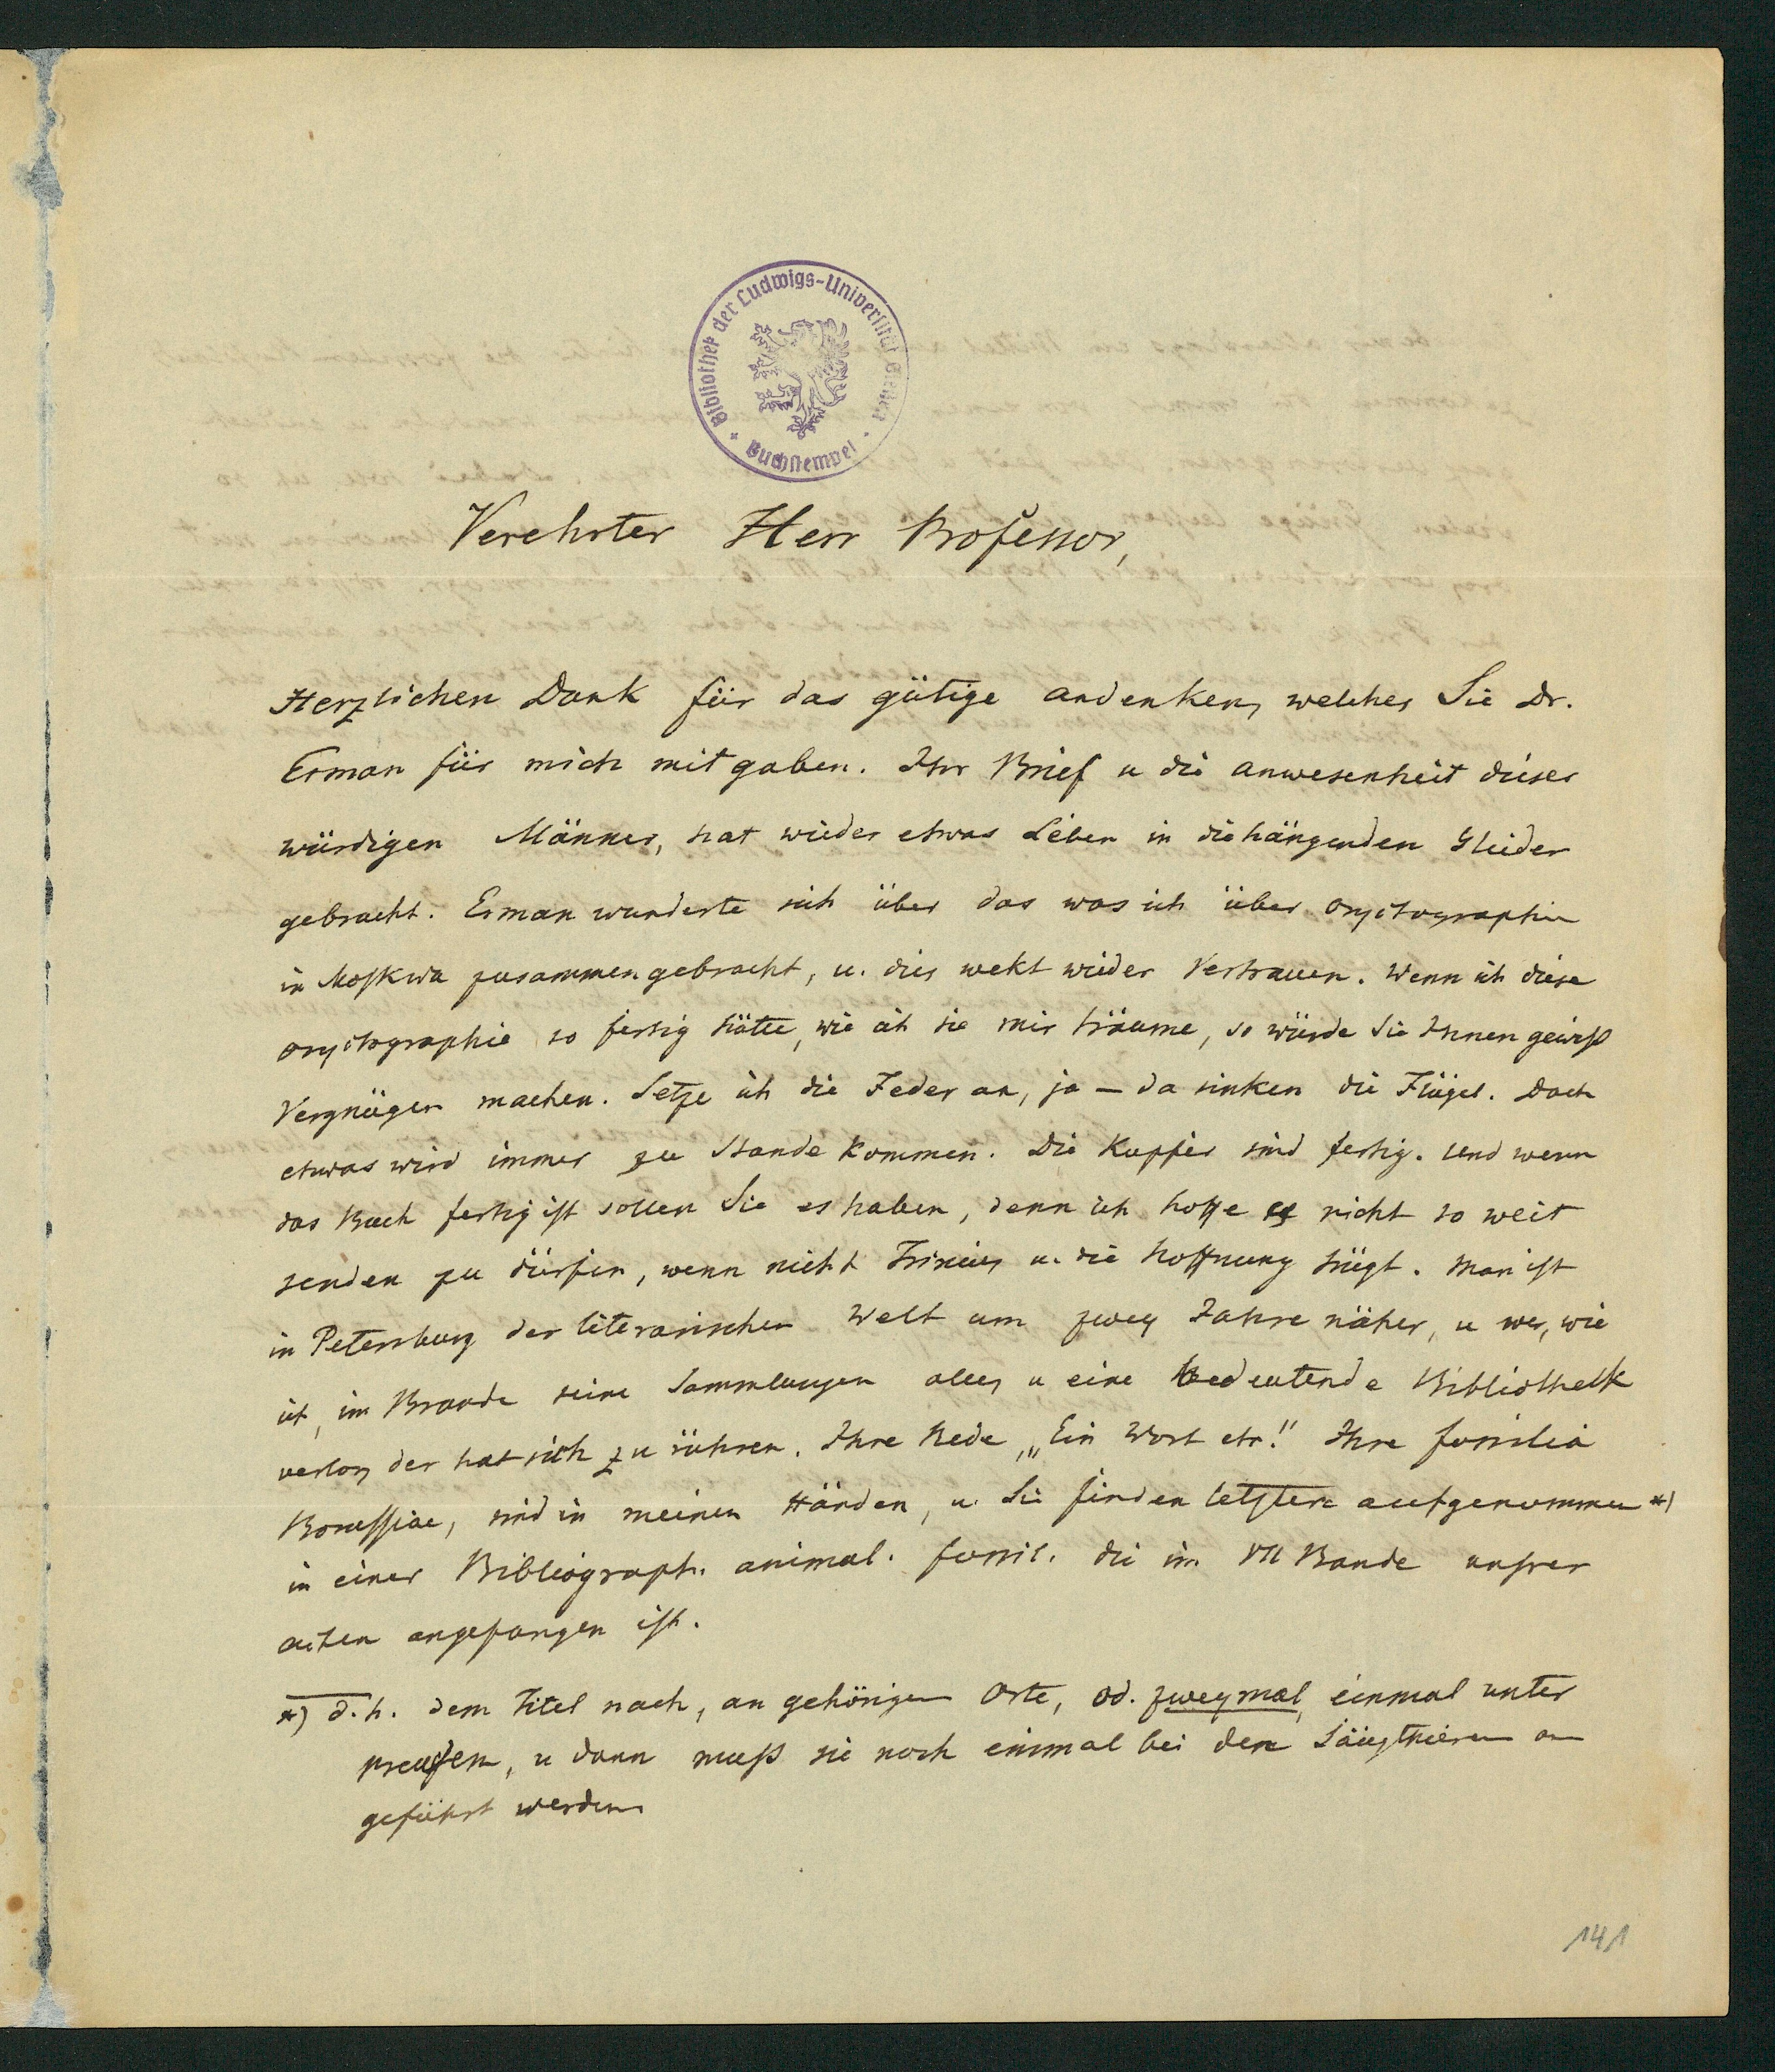 Bibliothek der Ludwigs-Universität Gießen
Buchstempel
Verehrter Herr Professor,
Herzlichen Dank für das gütige Andenken, welches Sie Dr.
Erman für mich mitgaben. Ihr Brief u die Anwesenheit dieses
würdigen Mannes, hat wieder etwas Leben in die hängenden Glieder
gebracht. Erman wunderte sich über das was ich über Oryctographie
in Moskwa zusammengebracht, u. dies wekt wieder Vertrauen. Wenn ich diese
Oryctographie so fertig hätte, wie ich sie mir träume, so würde Sie Ihnen gewiß
Vergnügen machen. Setze ich die Feder an, ja – da sinken die Flügel. Doch
etwas wird immer zu Stande kommen. Die Kupfer sind fertig. Und wenn
das Buch fertig ist sollen Sie es haben, denn ich hoffe es nicht so weit
senden zu dürfen, wenn nicht Trinius u. die Hoffnung trügt. Man ist
in Petersburg der literarischen Welt um zwey Jahre näher, u wer, wie
ich, im Brande seine Sammlungen alles u eine bedeutende Bibliothek
verlor, der hat sich zu rühren. Ihre Rede „Ein Wort etc." Ihre fossilia
Borussiae, sind in meinen Händen, u. Sie finden letztere aufgenommen *)
in einer Bibliograph. animal. fossil. die im VII Bande unsrer
Acten angefangen ist.
*) d. h. dem Titel nach, an gehörigem Orte, od. zweymal, einmal unter
Preußen, u dann muß sie noch einmal bei den Säugthieren an
geführt werden
141